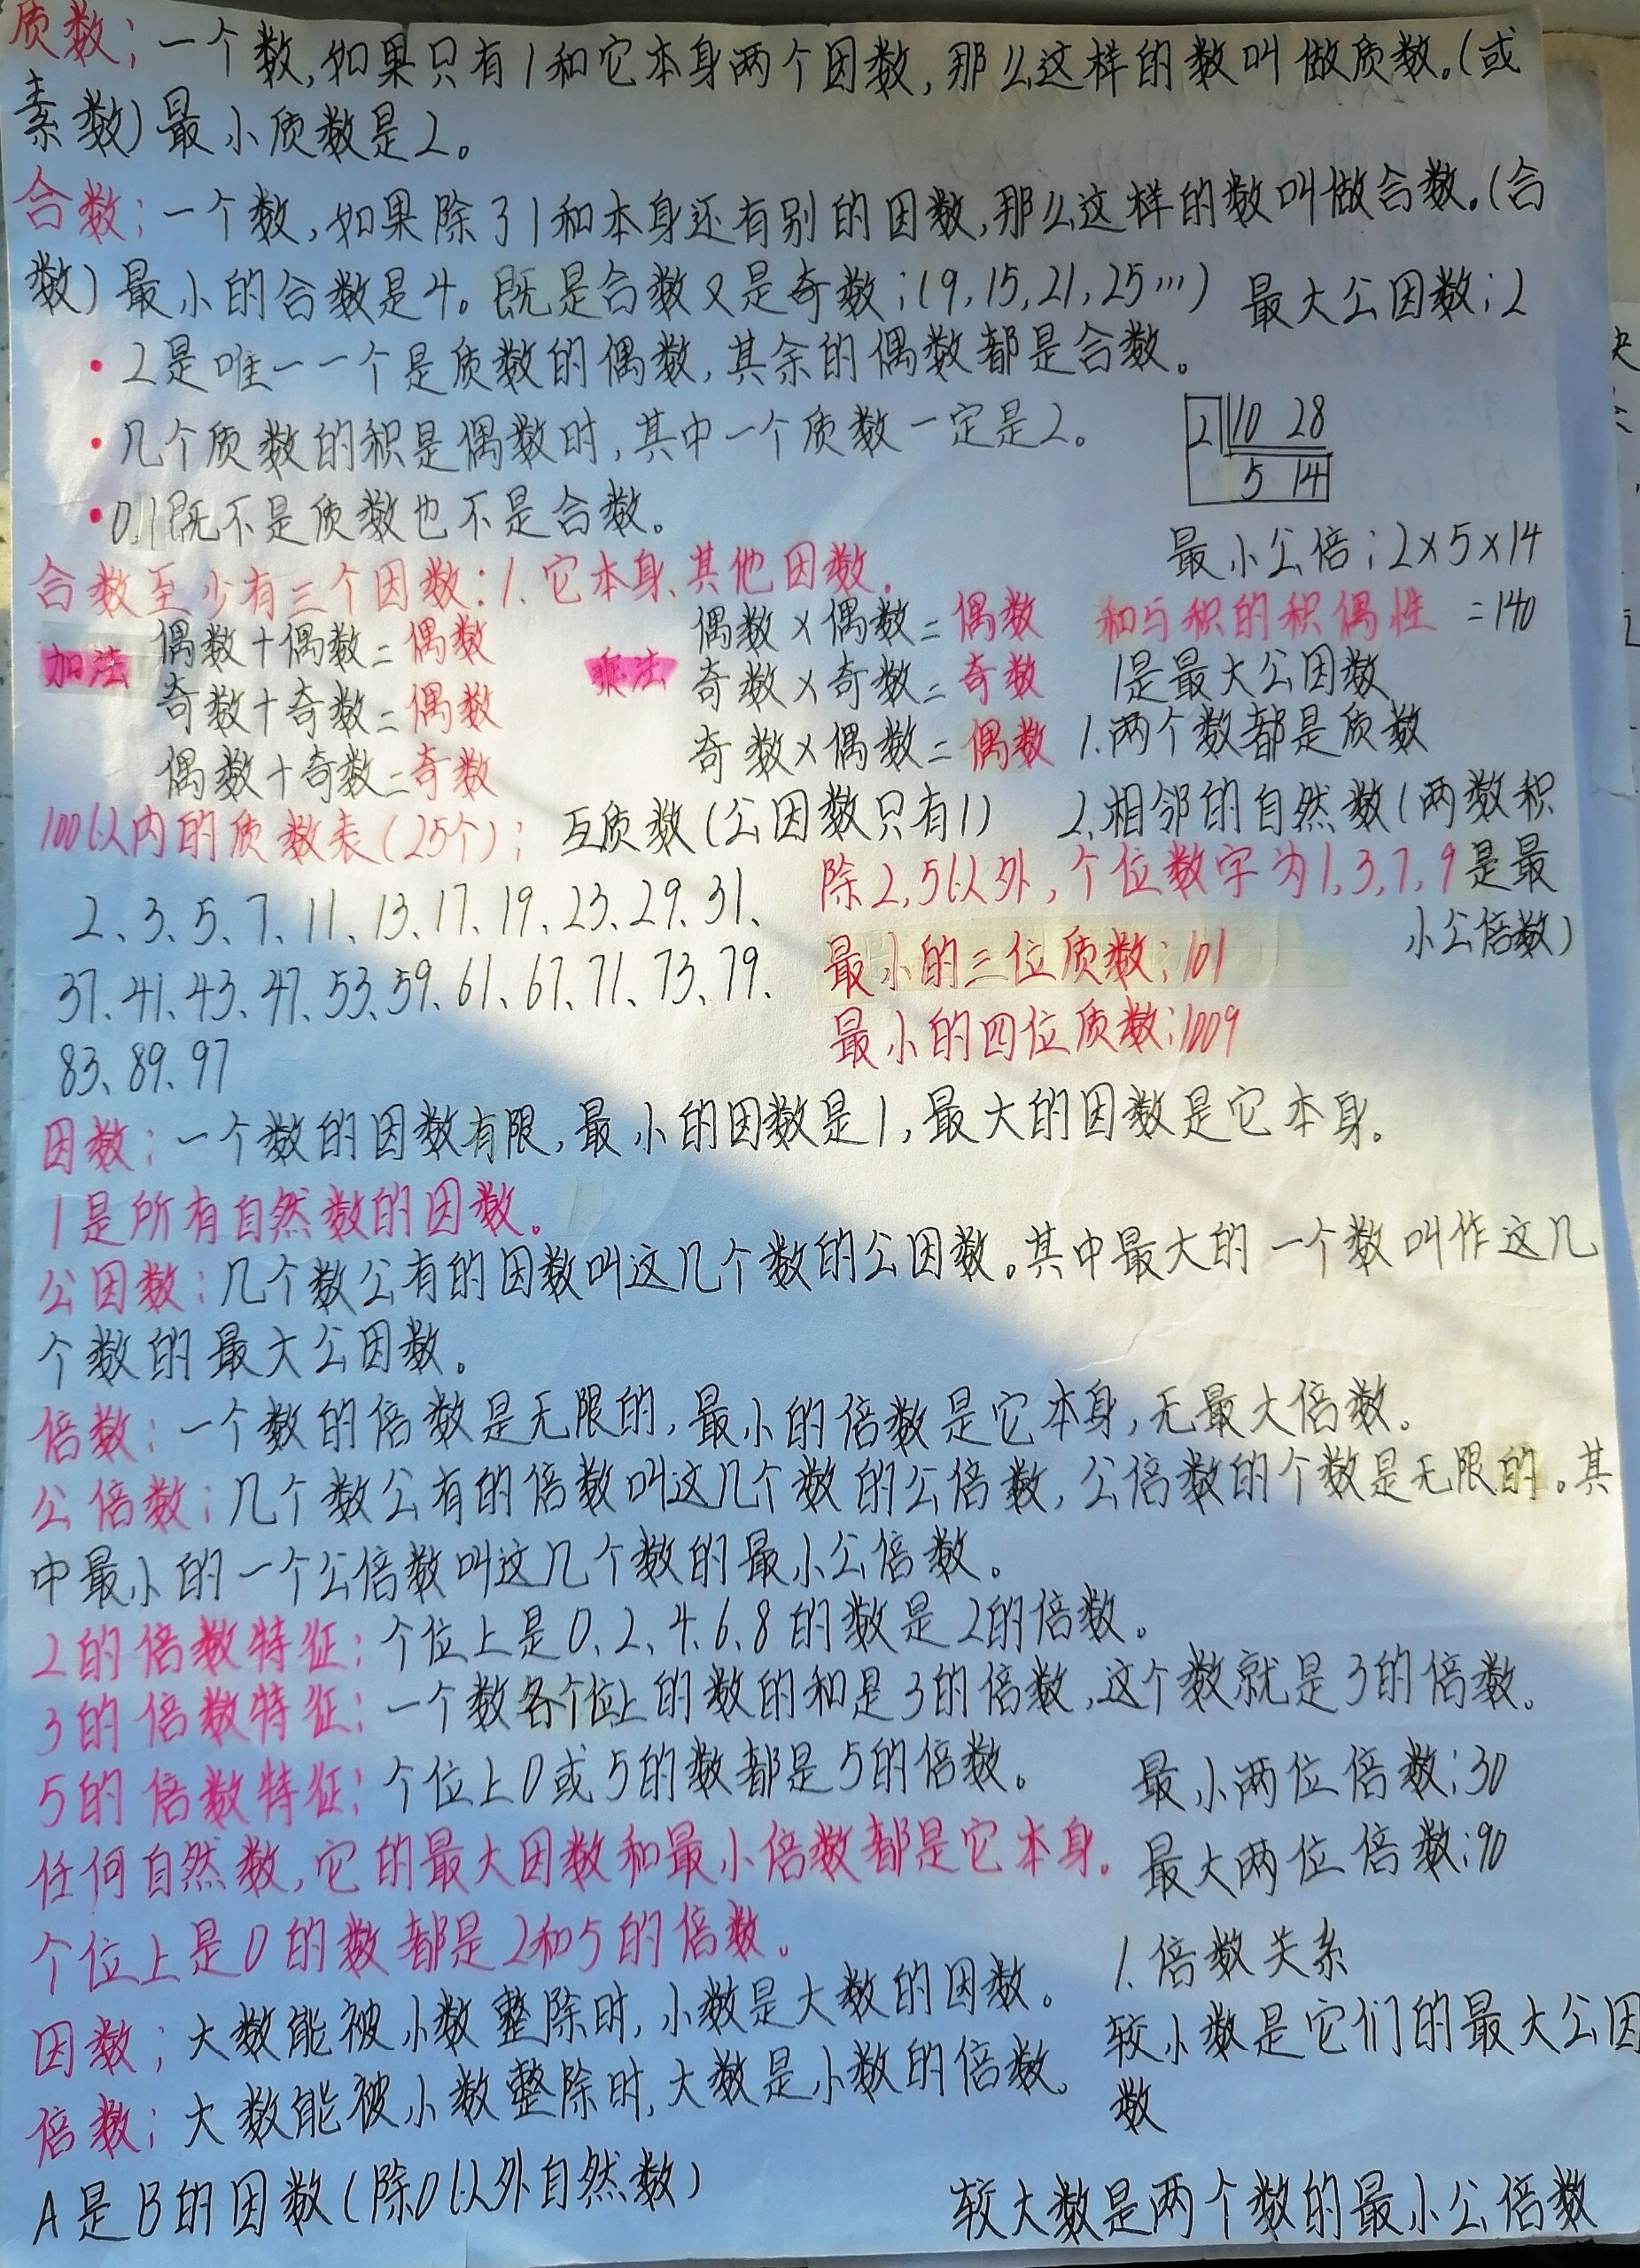 质数;一个数,如果只有1和它本身两个因数,那么这样的数叫做质数。(或
素数)最小质数是2。
合数;一个数,如果除了1和本身还有别的因数,那么这样的数叫做合数。(合
数)最小的合数是4。既是合数又是奇数;(9,15,21,25…)
最大公因数;2
·2是唯一一个是质数的偶数,其余的偶数都是合数。
·几个质数的积是偶数时,其中一个质数一定是2。
2 10 28
5 14
·0,1既不是质数也不是合数。
最小公倍;2×5×14
=140
合数至少有三个因数:1、它本身、其他因数。
加法
偶数+偶数=偶数
奇数+奇数=偶数
偶数+奇数=奇数
乘法
偶数×偶数=偶数
奇数×奇数=奇数
奇数×偶数=偶数
和与积的积偶性
1是最大公因数
1.两个数都是质数
2.相邻的自然数(两数积
是最
小公倍数)
100以内的质数表(25个);
互质数(公因数只有1)
2、3、5、7、11、13、17、19、23、29、31、
37、41、43、47、53、59、61、67、71、73、79、
83、89、97
除2,5以外,个位数字为1,3,7,9
最小的三位质数;101
最小的四位质数;1009
因数;一个数的因数有限,最小的因数是1,最大的因数是它本身。
1是所有自然数的因数。
公因数;几个数公有的因数叫这几个数的公因数。其中最大的一个数叫作这几
个数的最大公因数。
倍数;一个数的倍数是无限的,最小的倍数是它本身,无最大倍数。
公倍数;几个数公有的倍数叫这几个数的公倍数,公倍数的个数是无限的。其
中最小的一个公倍数叫这几个数的最小公倍数。
2的倍数特征;个位上是0、2、4、6、8的数是2的倍数。
3的倍数特征;一个数各个位上的数的和是3的倍数,这个数就是3的倍数。
5的倍数特征;个位上0或5的数都是5的倍数。
最小两位倍数;30
任何自然数,它的最大因数和最小倍数都是它本身。
最大两位倍数;90
个位上是0的数都是2和5的倍数。
1.倍数关系
因数;大数能被小数整除时,小数是大数的因数。
较小数是它们的最大公因
数
倍数;大数能被小数整除时,大数是小数的倍数。
A是B的因数(除0以外自然数)
较大数是两个数的最小公倍数